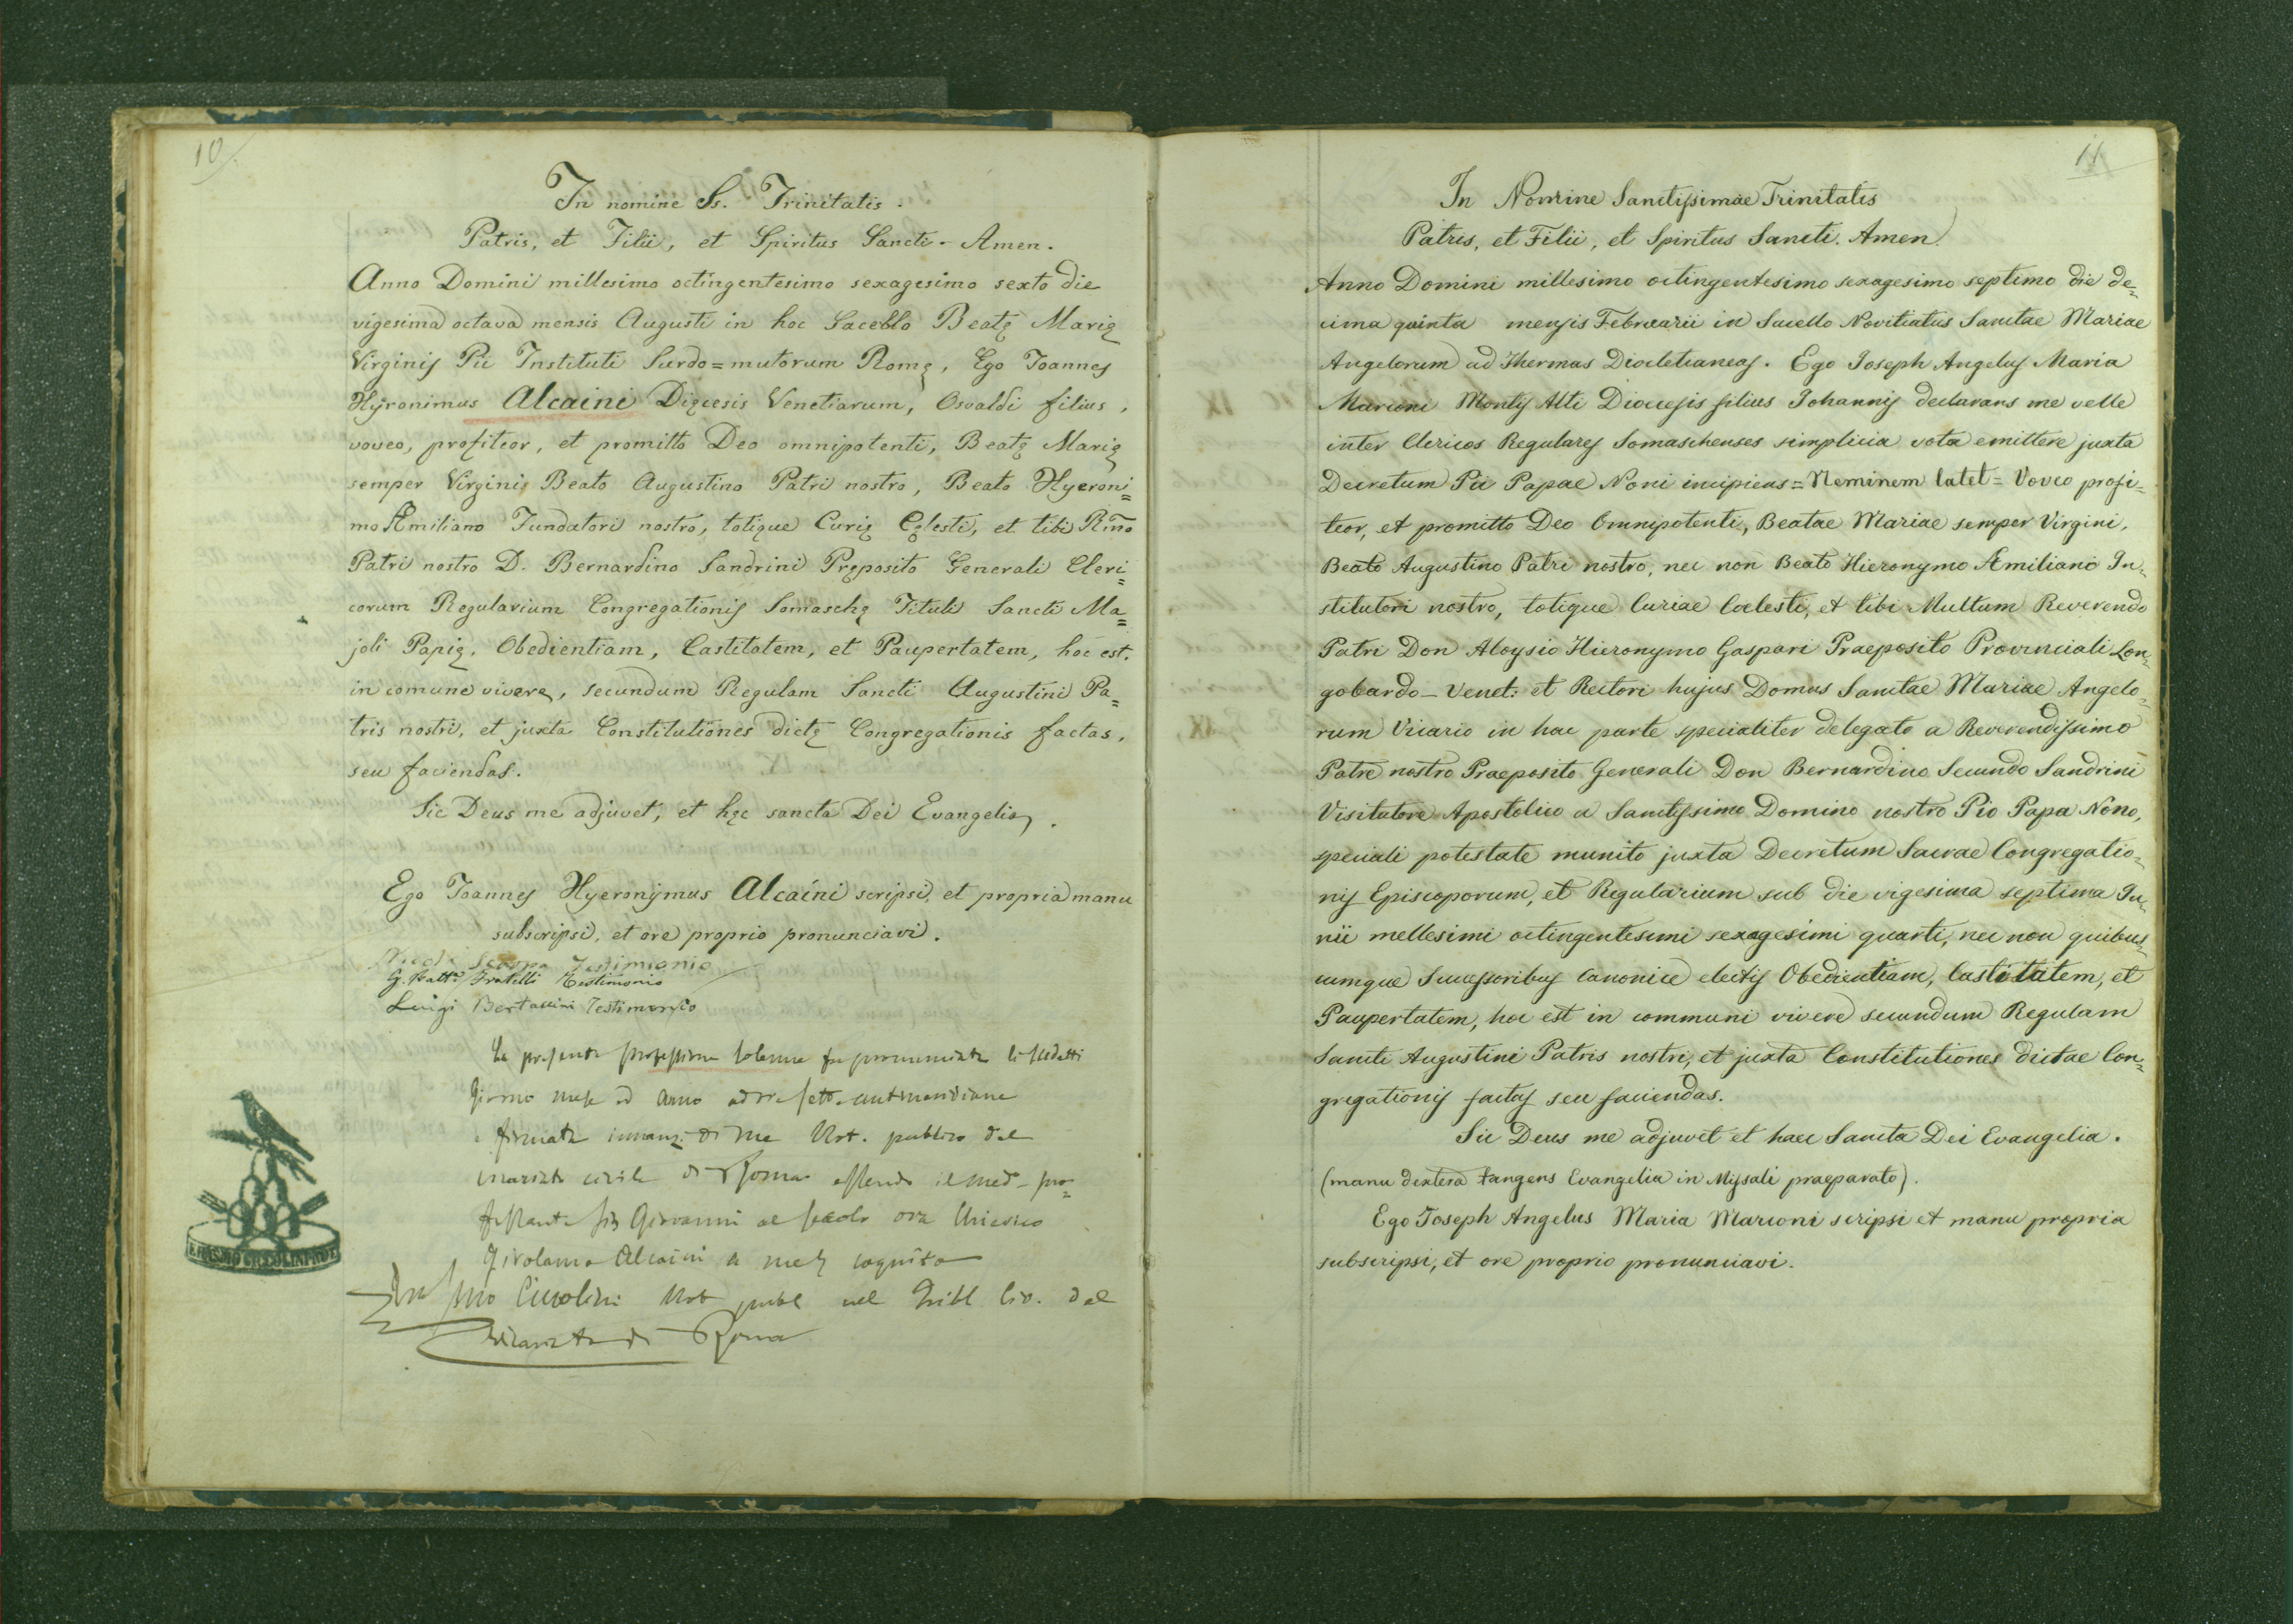 10.
In nomine Ss. Trinitatis.
Patris, et Filii, et Spiritus Sancti - Amen.
Anno Domini millesimo octingentesimo sexagesimo sexto die
vigesima octava mensis Augusti in hoc Sacello Beatę Marię
Virginis Pii Instituti Surdo=mutorum Romę, Ego Joannes
Hyronimus Alcaini Dięcesis Venetiarum, Osvaldi filius,
voveo, profiteor, et promitto Deo omnipotenti, Beatę Marię
semper Virginis Beato Augustino Patri nostro, Beato Hyeroni=
mo Æmiliano Fundatori nostro, totique Curię Cęlesti, et tibi Rmo
Patri nostro D. Bernardino Sandrini Pręposito Generali Cleri=
corum Regularium Congregationis Somaschę Tituli Sancti Ma=
joli Papię, Obedientiam, Castitatem, et Paupertatem, hoc est,
in comune vivere, secundum Regulam Sancti Augustini Pa=
tris nostri, et juxta Constitutiones dictę Congregationis factas,
seu faciendas.
Sic Deus me adjuvet, et hęc sancta Dei Evangelia.
Ego Joannes Hyeronymus Alcaini scripsi, et propria manu
subscripsi, et ore proprio pronunciavi.
Testimonio
G. Batta Fratelli Testimonio
Luigi Bertaccini Testimonio
La presente professione solenne fu pronunciata li suddetti
giorno mese ed anno ad ore sette antimeridiane
e firmata innanzi di me Not. publico del
vicariato civile di Roma essendo il med. pro=
fessante Giovanni al secolo ora Chierico
Girolamo Alcaini a me cognito
Not publ nel Tribl Civ. del
Vicariato di Roma
11
In Nomine Sanctissimae Trinitatis
Patris, et Filii, et Spiritus Sancti. Amen.
Anno Domini millesimo octingentesimo sexagesimo septimo die de=
cima quinta mensis Februarii in Sacello Novitiatus Sanctae Mariae
Angelorum ad Thermas Diocletianeas. Ego Joseph Angelus Maria
Marconi Montis Alti Dioecesis filius Johannis declarans me velle
inter Clericos Regulares Somaschenses simplicia vota emittere juxta
Decretum Pii Papae Noni incipiens = Neminem latet = Voveo profi=
teor, et promitto Deo Omnipotenti, Beatae Mariae semper Virgini,
Beato Augustino Patri nostro, nec non Beato Hieronymo Æmiliano In=
stitutori nostro, totique Curiae Coelesti, et tibi Multum Reverendo
Patri Don Aloysio Hieronymo Gaspari Praeposito Provinciali Lon=
gobardo-Venet: et Rectori hujus Domus Sanctae Mariae Angelo=
rum Vicario in hac parte specialiter delegato a Reverendissimo
Patre nostro Praeposito Generali Don Bernardino Secundo Sandrini
Visitatore Apostolico a Sanctissimo Domino nostro Pio Papa Nono,
speciali potestate munito juxta Decretum Sacrae Congregatio=
nis Episcoporum, et Regularium sub die vigesima septima Ju=
nii mellesimi octingentesimi sexagesimi quarti, nec non quibus=
cumque Successoribus Canonice electis Obedientiam, Castitatem, et
Paupertatem, hoc est in communi vivere secundum Regulam
Sancti Augustini Patris nostri, et juxta Constitutiones dictae Con=
gregationis factas seu faciendas.
Sic Deus me adjuvet et haec Sancta Dei Evangelia.
(manu dextera tangens Evangelia in Missali praeparato).
Ego Joseph Angelus Maria Marconi scripsi et manu propria
subscripsi, et ore proprio pronunciavi.